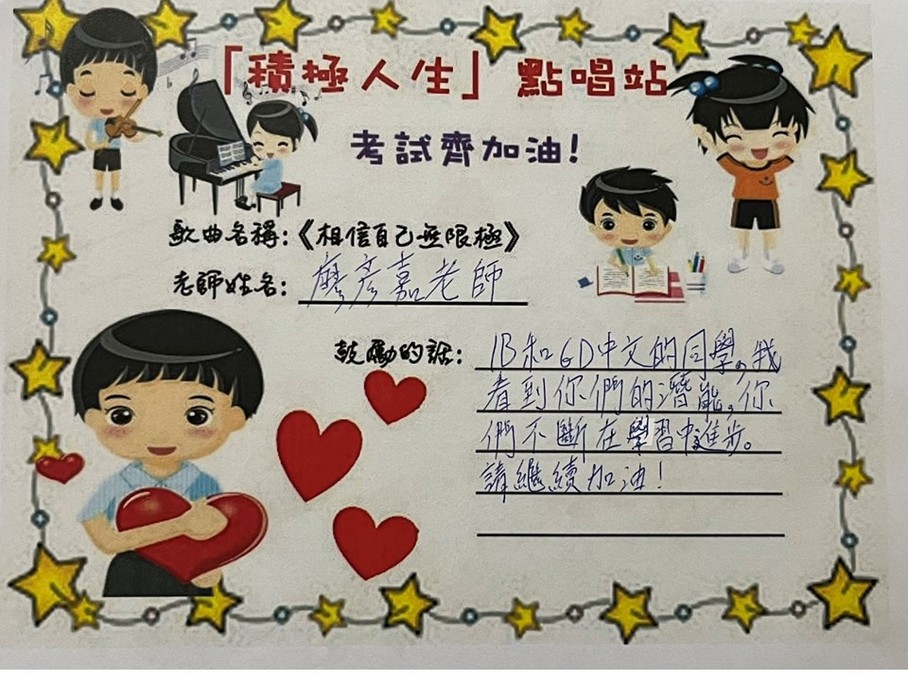 「積極人生」點唱站
考試齊加油!
歌曲名稱:《相信自己無限極》
老師姓名: 廖彥嘉老師
鼓勵的話: 1B和6D中文的同學,我
看到你們的潛能,你
們不斷在學習中進步。
請繼續加油!